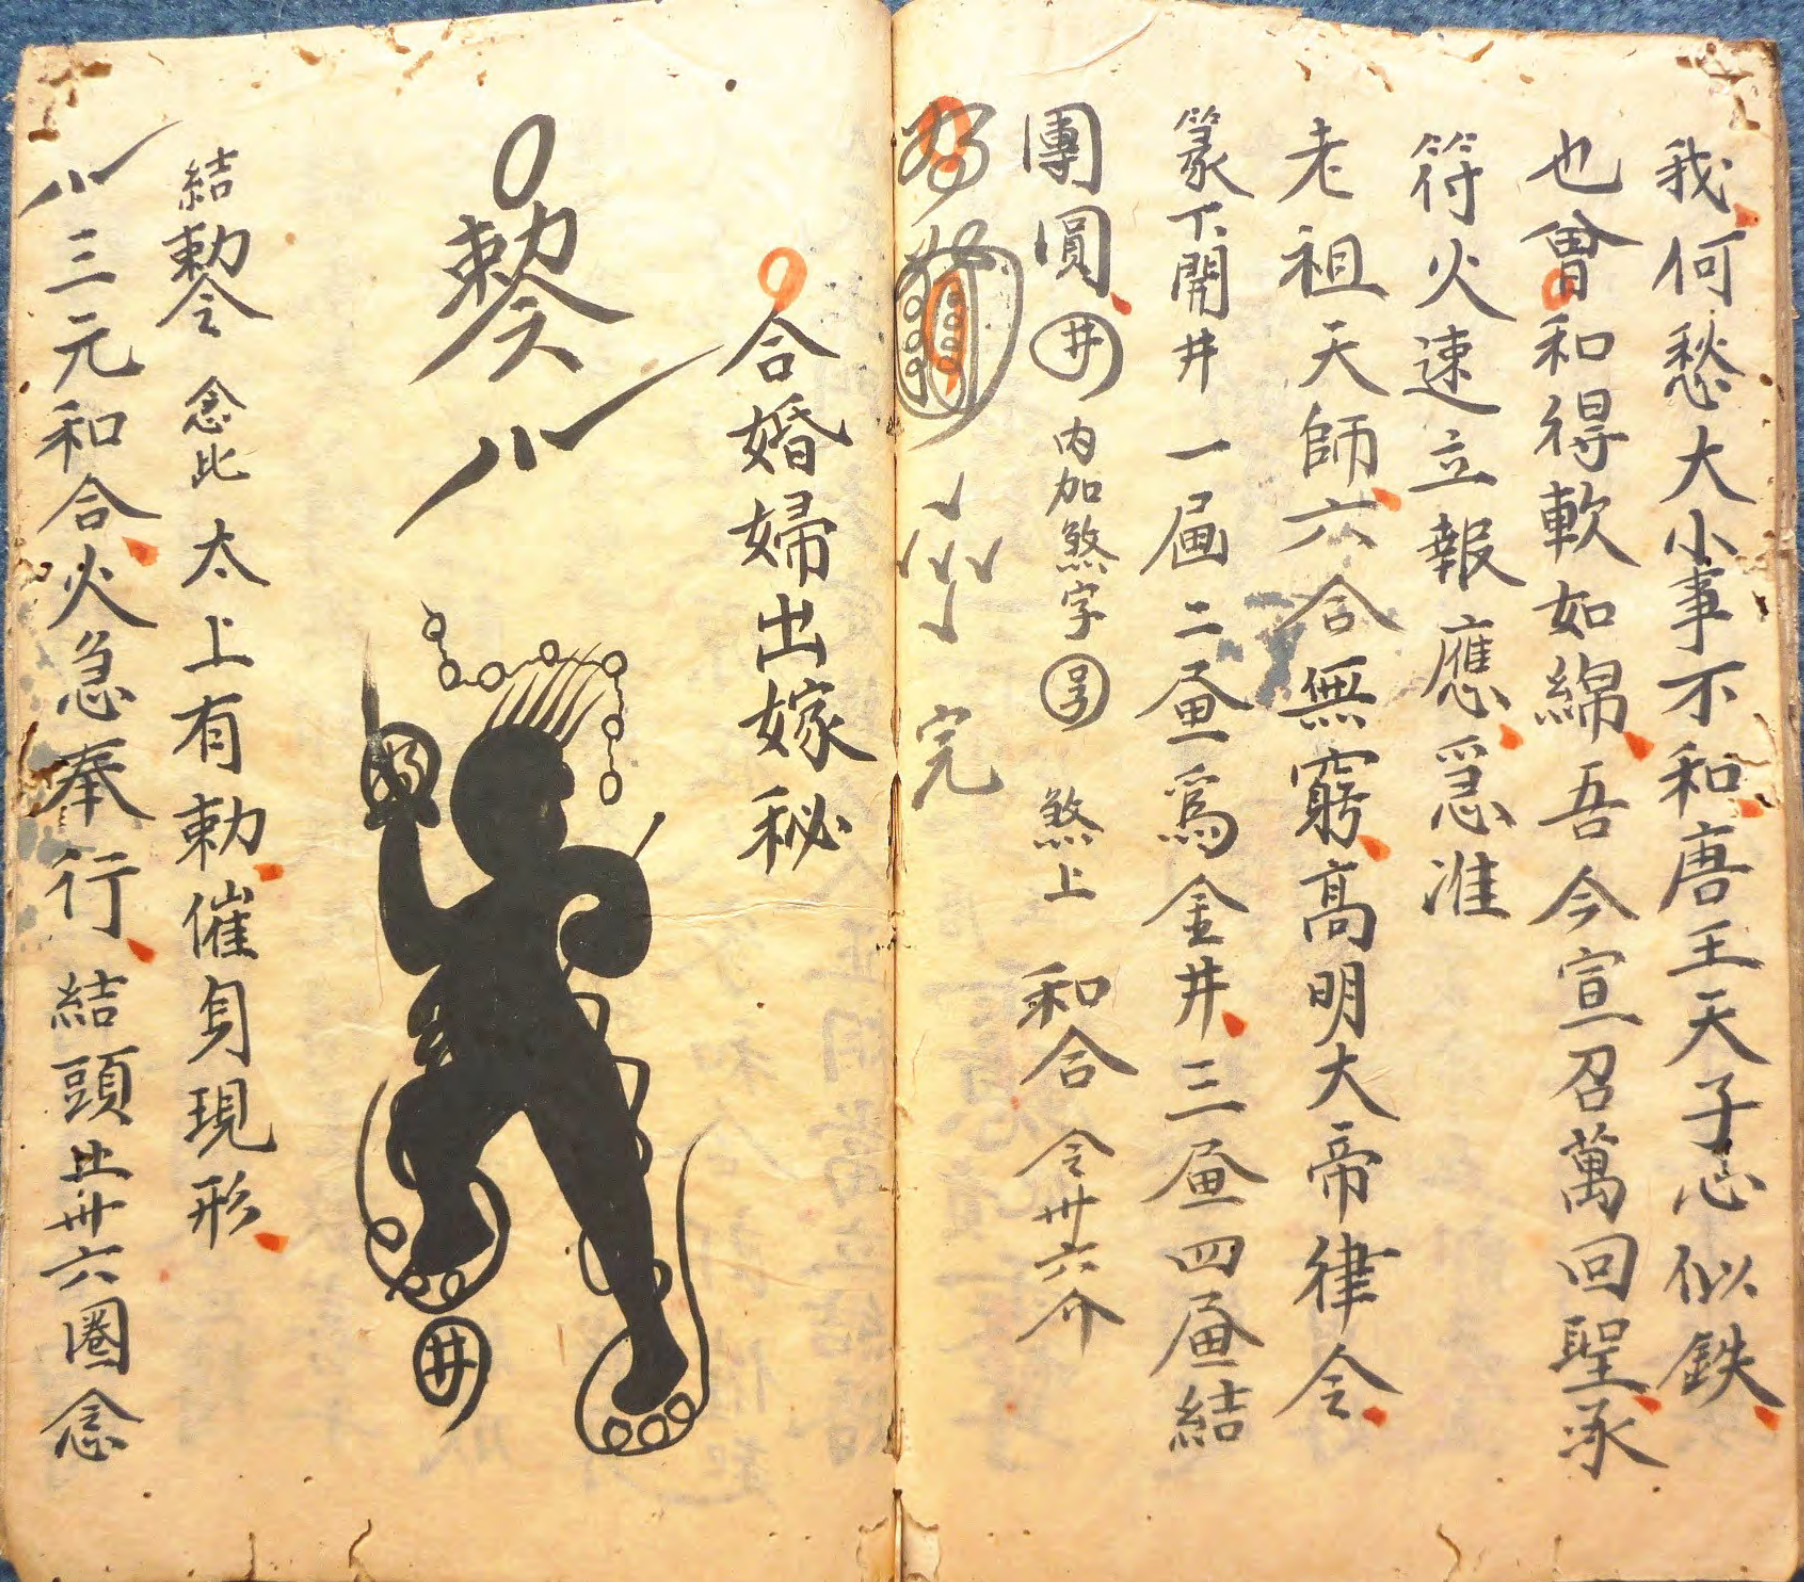 我何愁大小事不和唐王天子心似鉄
也曾和得軟如綿吾今宣召萬回聖承
符火速立報應急准
老祖天師六合無窮高明大帝律令
篆下開井一畫二畫爲金井三畫四畫結
團圓井内加煞字号煞上和合令卅六介
完
合婚婦出嫁秘
勅令
井
結勅令念比太上有勅催身現形
三元和合火急奉行結頭止卅六圈念